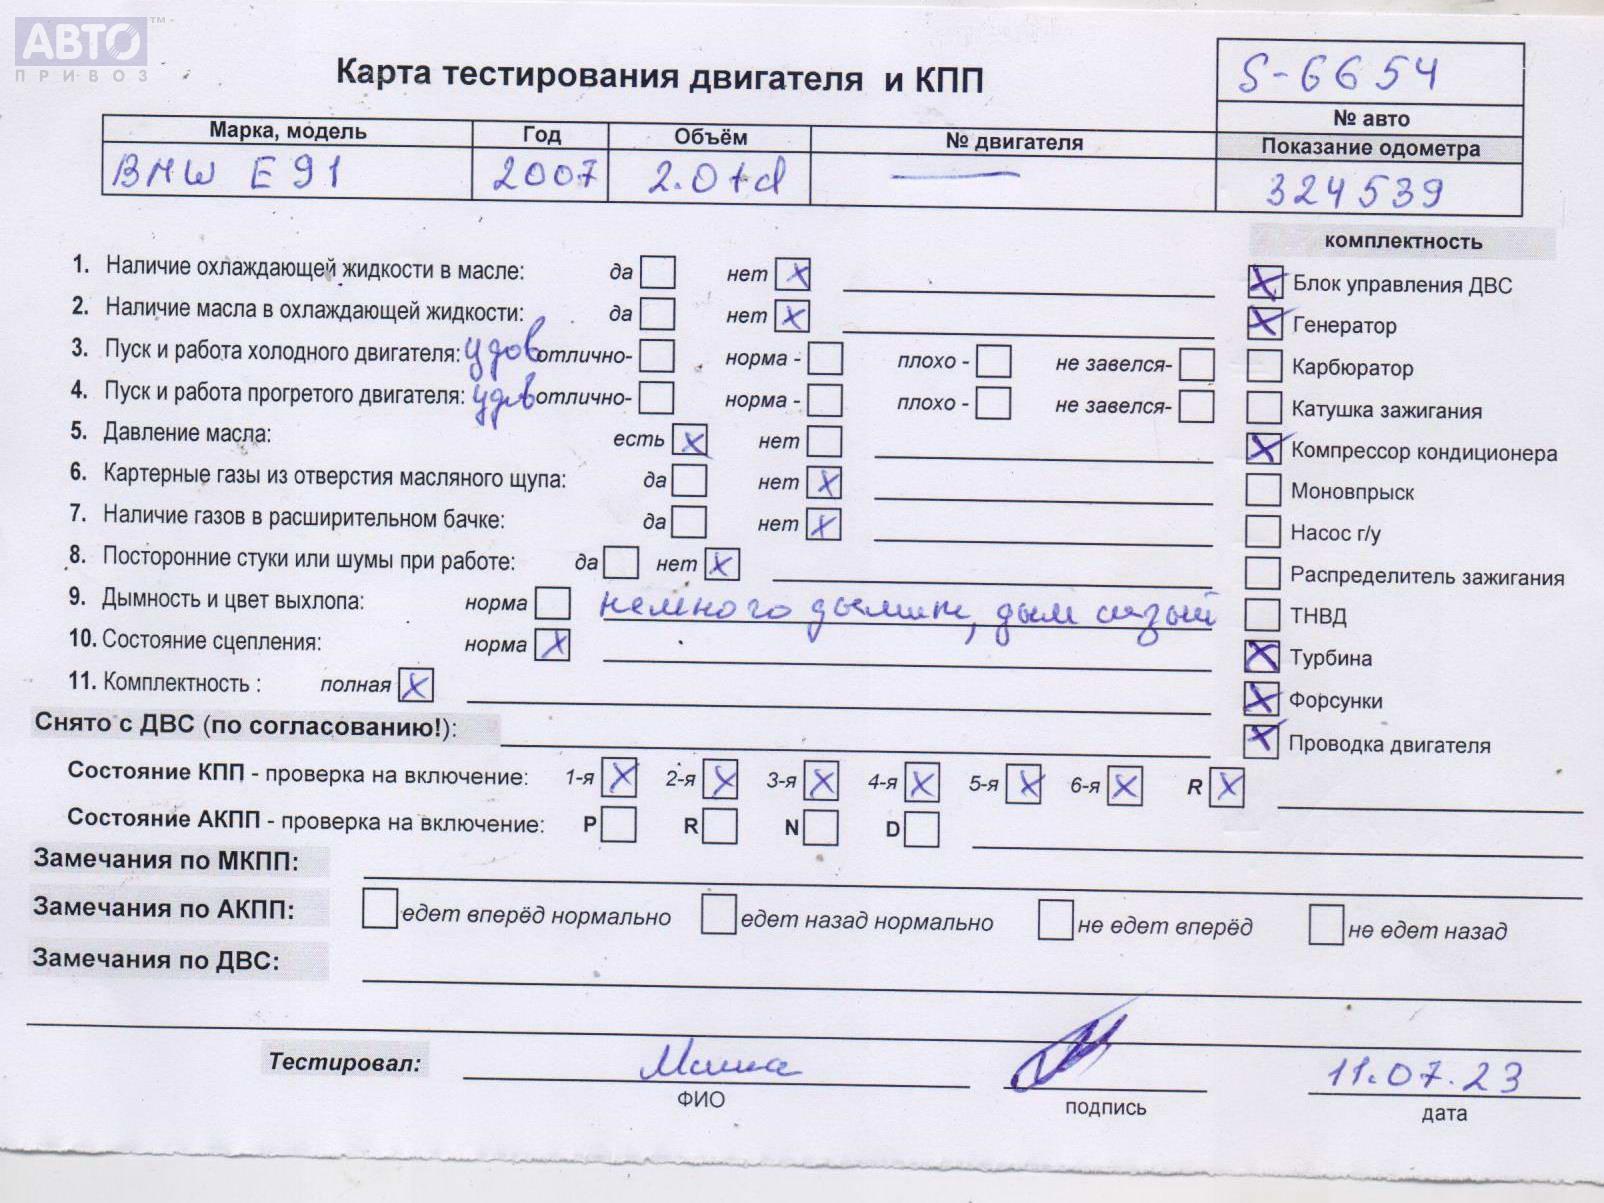 АВТО™
ПРИВОЗ
Карта тестирования двигателя и КПП
S-6654
№ авто
Марка, модель Год Объём № двигателя Показание одометра
BMW E91 2007 2.0td — 324539
комплектность
1. Наличие охлаждающей жидкости в масле: да нет X
Блок управления ДВС X
2. Наличие масла в охлаждающей жидкости: да нет X
Генератор X
3. Пуск и работа холодного двигателя: удов отлично- норма - плохо - не завелся-
Карбюратор
4. Пуск и работа прогретого двигателя: удов отлично- норма - плохо - не завелся-
Катушка зажигания
5. Давление масла: есть X нет
Компрессор кондиционера X
6. Картерные газы из отверстия масляного щупа: да нет X
Моновпрыск
7. Наличие газов в расширительном бачке: да нет X
Насос г/у
8. Посторонние стуки или шумы при работе: да нет X
Распределитель зажигания
9. Дымность и цвет выхлопа: норма немного дымит, дым сизый
ТНВД
10. Состояние сцепления: норма X
Турбина X
11. Комплектность : полная X
Форсунки X
Снято с ДВС (по согласованию!):
Проводка двигателя X
Состояние КПП - проверка на включение: 1-я X 2-я X 3-я X 4-я X 5-я X 6-я X R X
Состояние АКПП - проверка на включение: P R N D
Замечания по МКПП:
Замечания по АКПП: едет вперёд нормально едет назад нормально не едет вперёд не едет назад
Замечания по ДВС:
Тестировал: 11.07.23
ФИО подпись дата